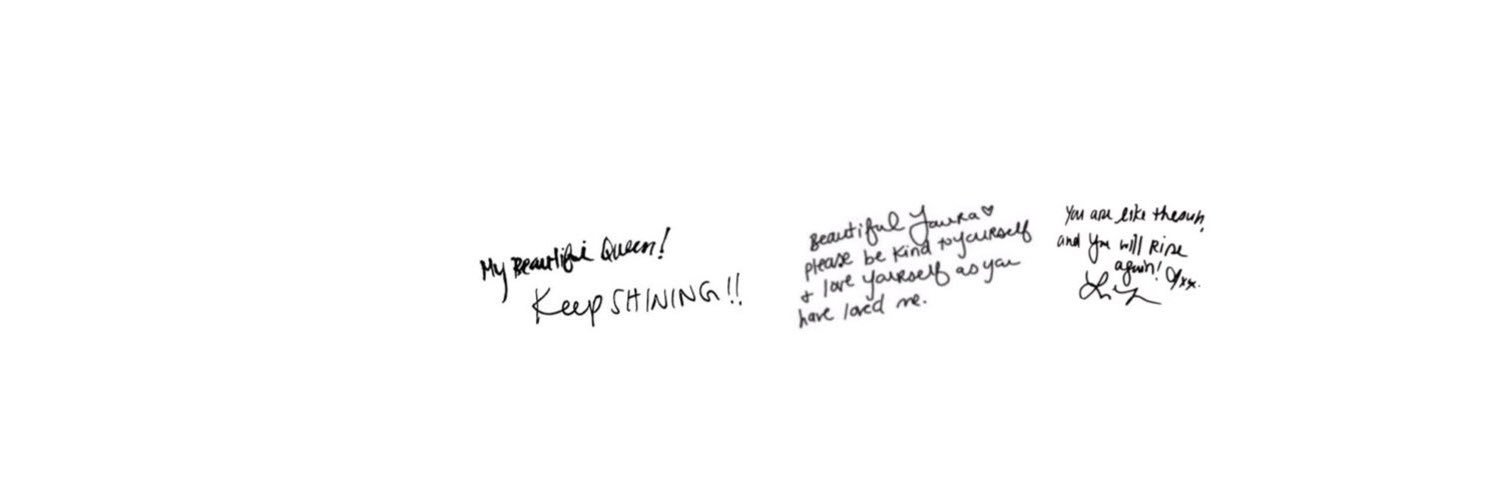 My Beautiful Queen!
Keep SHINING!!
Beautiful Yaura♡
please be kind to yourself
& love yourself as you
have loved me.
You are like the sun,
and you will Rise
again! xx.